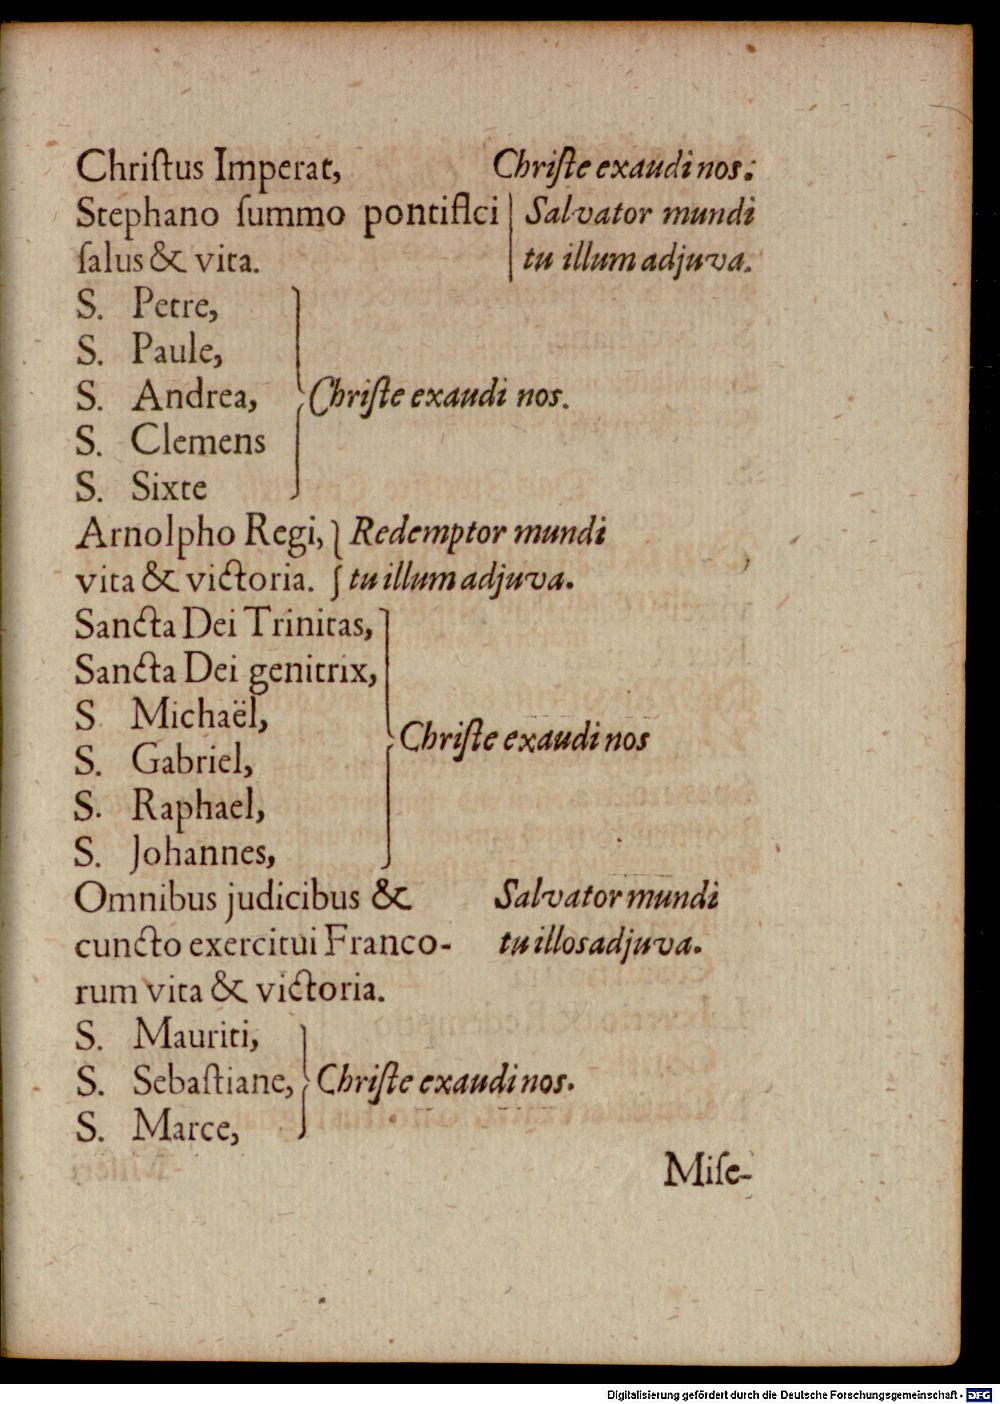 Chriſtus Imperat, Chriſte exaudi nos:
Stephano ſummo pontifici Salvator mundi
ſalus & vita. tu illum adjuva.
S. Petre,
S. Paule,
S. Andrea, Chriſte exaudi nos.
S. Clemens
S. Sixte
Arnolpho Regi, Redemptor mundi
vita & victoria. tu illum adjuva.
Sancta Dei Trinitas,
Sancta Dei genitrix,
S Michaël,
Chriſte exaudi nos
S. Gabriel,
S. Raphael,
S. Johannes,
Omnibus judicibus & Salvator mundi
cuncto exercitui Franco- tu illos adjuva.
rum vita & victoria.
S. Mauriti,
S. Sebaſtiane, Chriſte exaudi nos.
S. Marce,
Miſe-
Digitalisierung gefördert durch die Deutsche Forschungsgemeinschaft - DFG